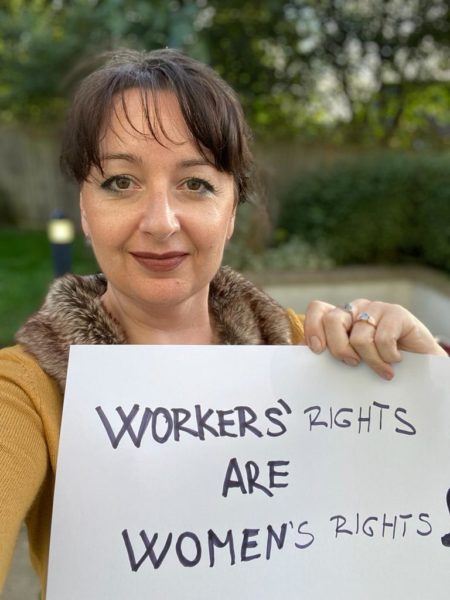 WORKERS' RIGHTS
ARE
WOMEN'S RIGHTS!